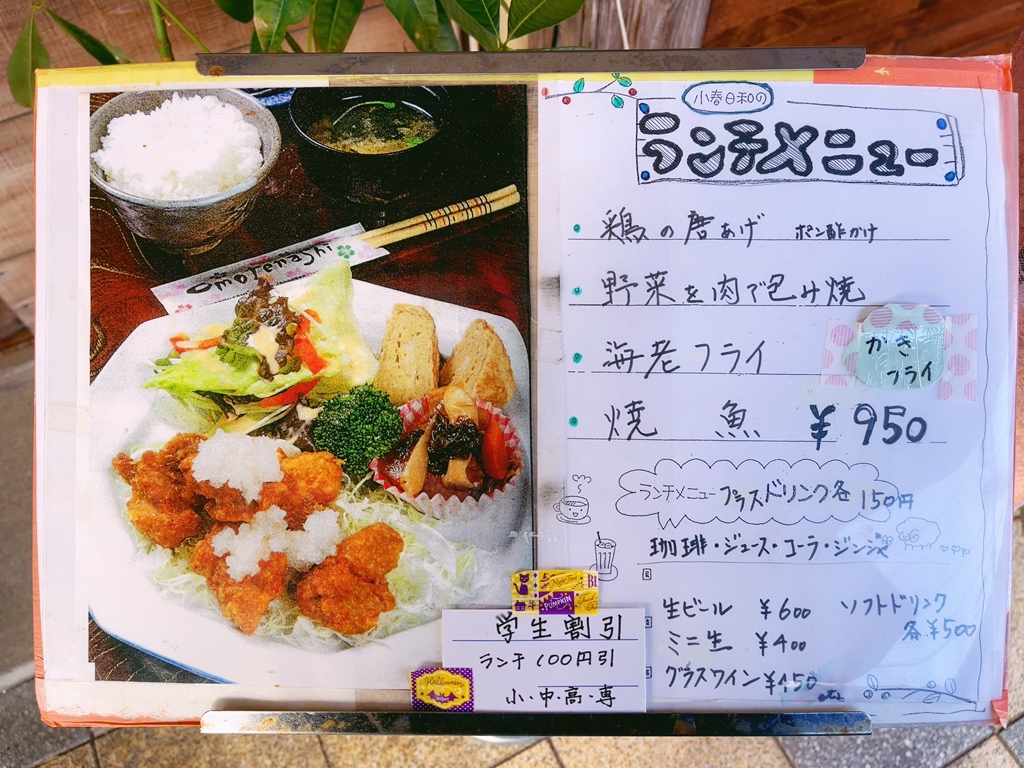 小春日和の
ランチメニュー
鶏の唐あげ ポン酢かけ
野菜を肉で包み焼
海老フライ
かき
フライ
焼 魚 ¥950
ランチメニュープラスドリンク各150円
珈琲・ジュース・コーラ・ジンジャ
生ビール ¥600
ミニ生 ¥400
グラスワイン¥450
ソフトドリンク
各¥500
omotenashi
Night Time
PUMPKIN
学生割引
ランチ100円引
小・中・高・専
Halloween